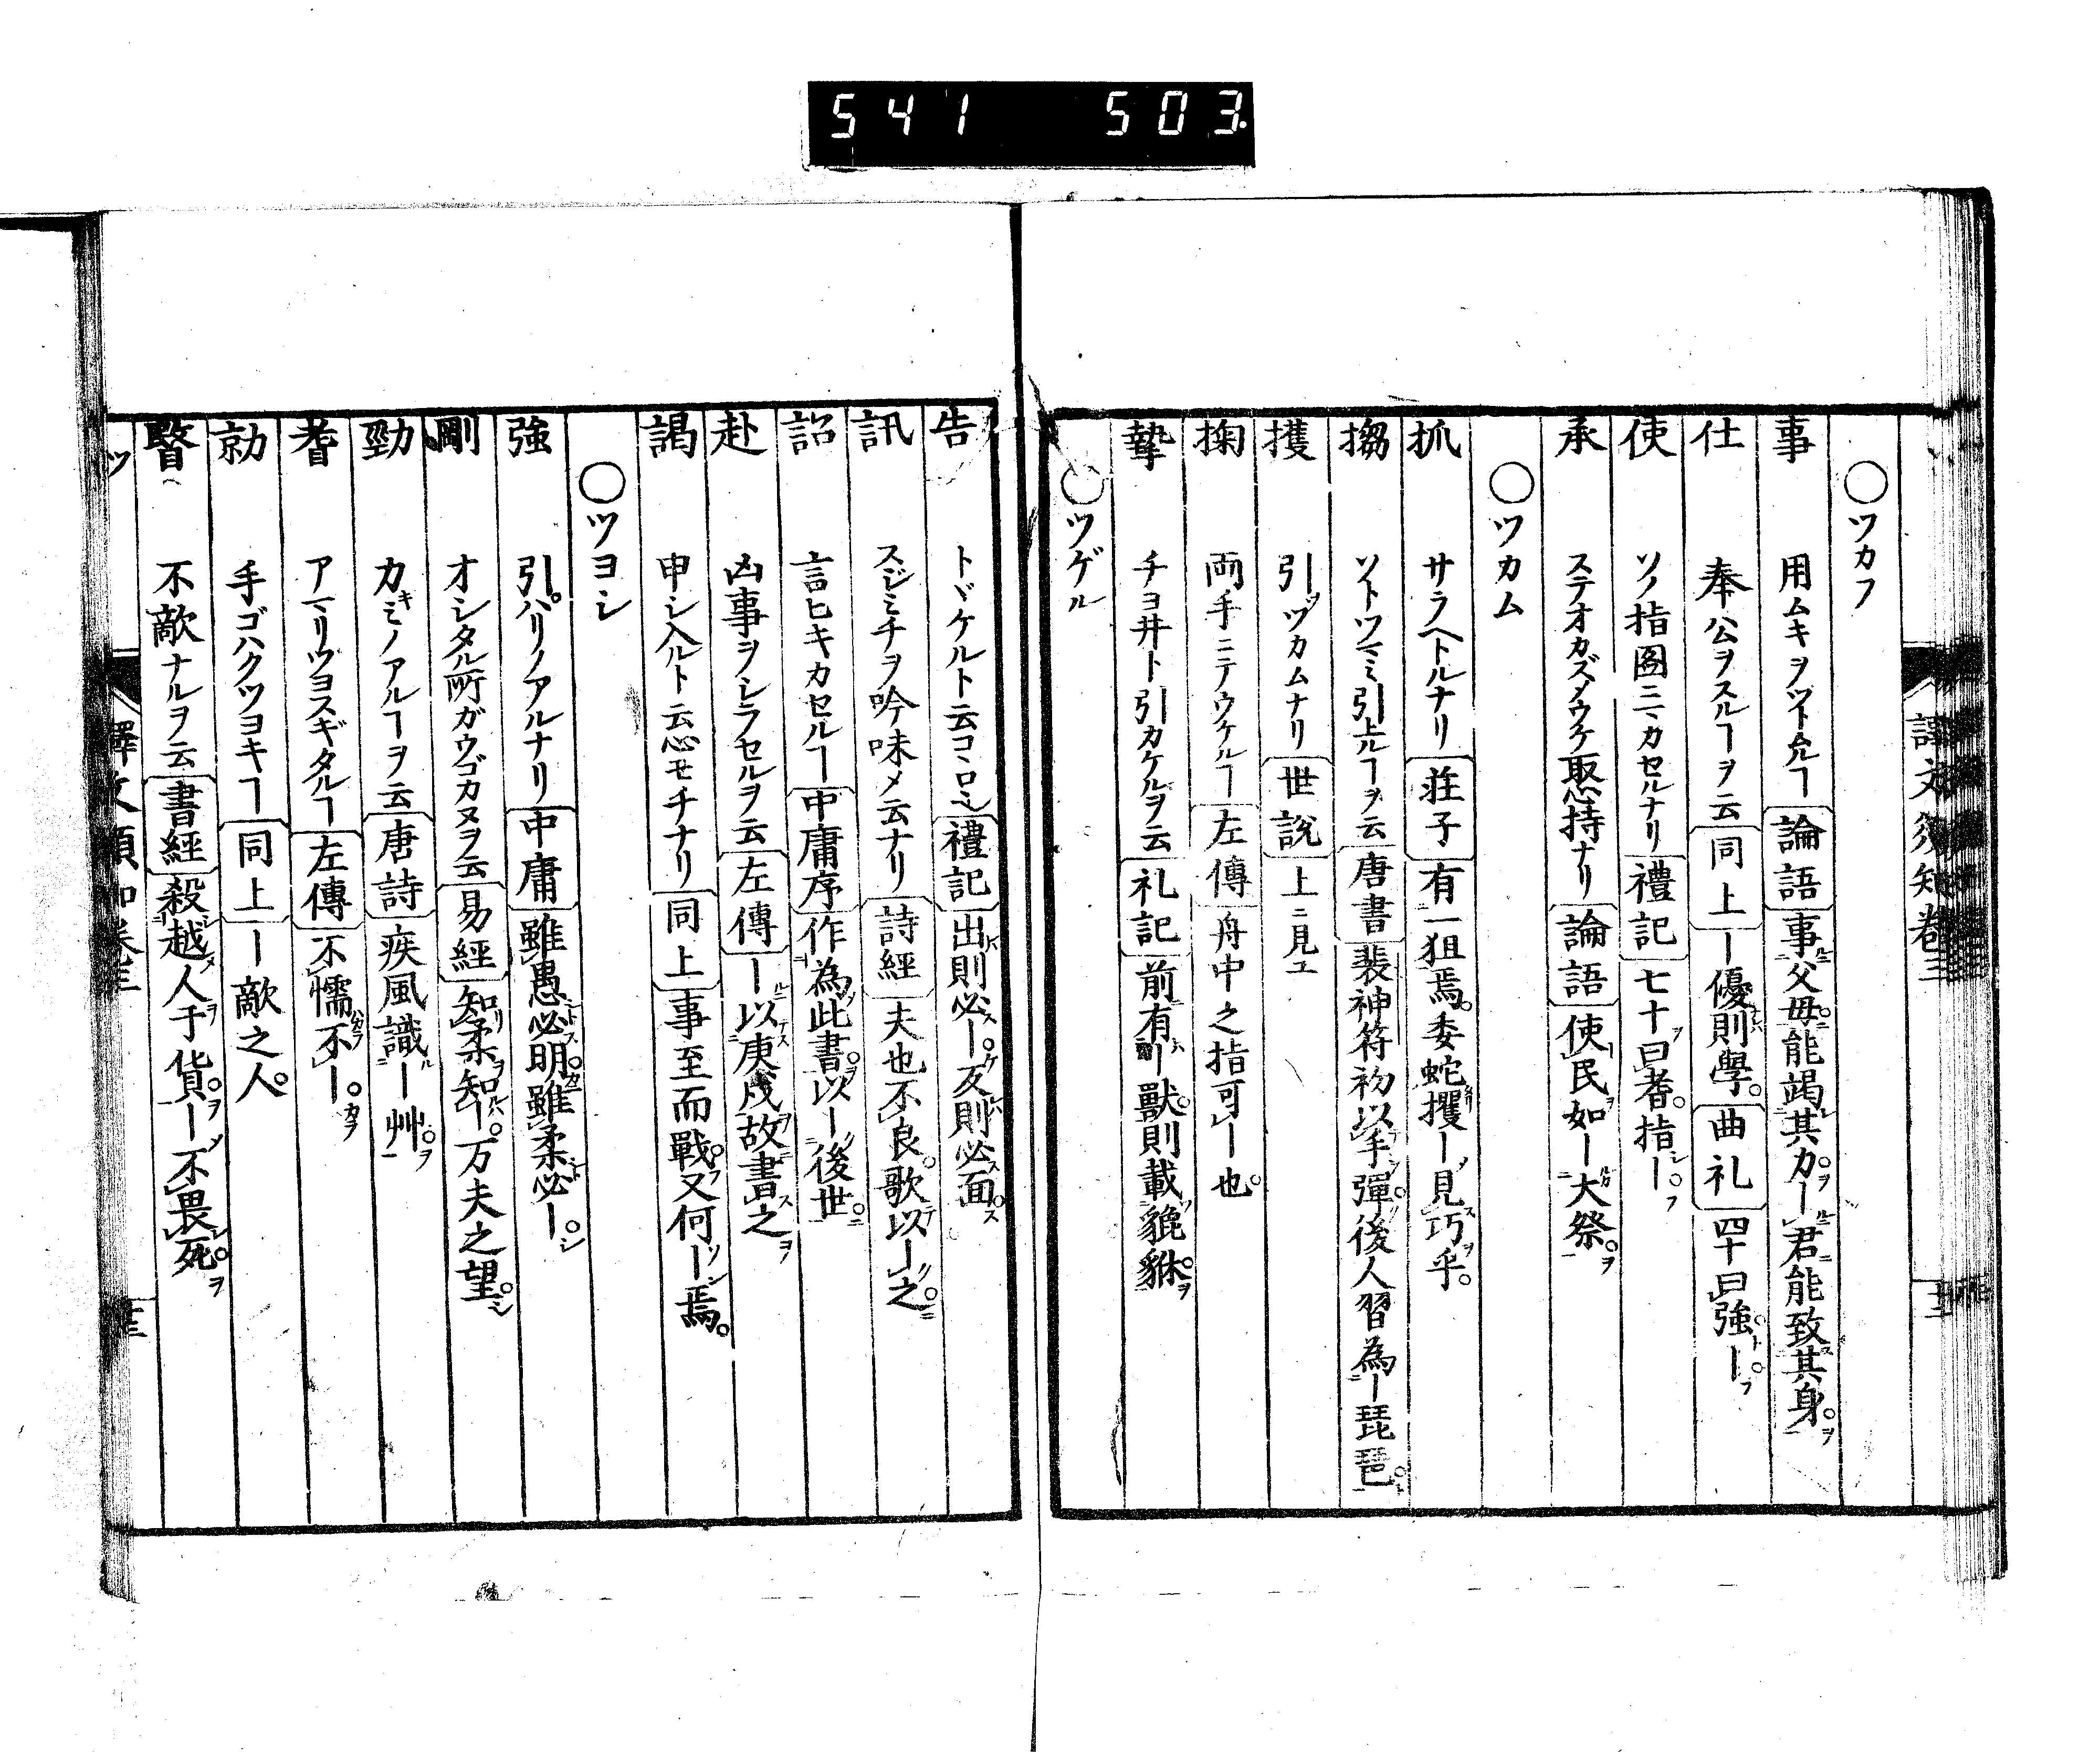 541 503.
譯文須知卷三
○ツカフ
事 用ムキヲツト允ヿ 論語 事父母能竭其力ー君能致其身
仕 奉公ヲスルヿヲ云 同上 ー優則學 曲礼 四十曰強ー
使 ソノ指圖ニマカセルナリ 禮記 七十曰耆指ー
承 ステオカズメウケ取悪持ナリ 論語 使民如ー大祭
○ツカム
抓 サラヘトルナリ 荘子 有一狙焉委蛇攫ー見巧乎
搊 ソトツマミ引上ルヿヲ云 唐書 裴神符初以手彈後人習為ー琵琶
擭 引ツヅカムナリ 世説 上ニ見エ
掬 両手ニテウケルヿ 左傳 舟中之指可ー也
摯 チヨ井ト引カケルヲ云 礼記 前有ー獸則載貔貅
○ツゲル
告 トヾケルト云コヽロ也 禮記 出則必ー反則必面
訊 スジミチヲ吟味メ云ナリ 詩經 夫也不良歌以ー之
詔 言ヒキカセルヿ 中庸序 作為此書以ー後世
赴 凶事ヲシラセルヲ云 左傳 ー以庚戌故書之
謁 申シ入ルト云心モチナリ 同上 事至而戰又何ー焉
○ツヨシ
強 引ハリノアルナリ 中庸 雖愚必明雖柔必ー
剛 オシタル所ガウゴカヌヲ云 易經 知柔知ー万夫之望
勁 カキミノアルヿヲ云 唐詩 疾風識ー艸
耆 アマリツヨスギタルヿ 左傳 不懦不ー
勍 手ゴハクツヨキヿ 同上 ー敵之人
暋 不敵ナルヲ云 書經 殺越人于貨ー不畏死
ツ 譯文須知卷三